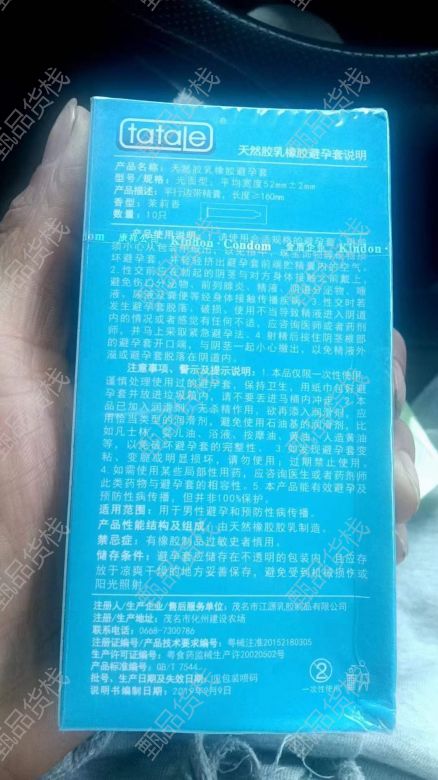 tatale
天然胶乳橡胶避孕套说明
产品名称：天然胶乳橡胶避孕套
型号/规格：光面型；平均宽度52mm±2mm
产品描述：平行边带精囊，长度≥160mm
香型：茉莉香
数量：10只
产品使用说明：
Kindon Condom
Kindon
须小心从包
坏避孕套，并轻轻挤出避孕套前端贮精囊内的空气。
2.性交前应在勃起的阴茎与对方身体接触之前戴上，
避免伤口分泌物、前列腺炎、精液、阴道分泌物、唾
液、尿液及粪便等经身体接触传播疾病。3.性交时若
发生避孕套脱落、破损、使用不当导致精液进入阴道
内的情况或者感觉有任何不适，应咨询医师或者药剂
师，并马上采取紧急避孕法。4.射精后按住阴茎根部
的避孕套开口端，与阴茎一起小心撤出，以免精液外
溢或避孕套脱落在阴道内。
注意事项、警示及提示说明：1.本品仅限一次性使用，
谨慎处理使用过的避孕套，保持卫生，用纸巾包好避
孕套并放进垃圾箱内，请不要丢进马桶内冲走。2.本
品已加入润滑剂，无杀精作用，欲再添入润滑剂，应
用恰当类型的润滑剂，避免使用石油基的润滑剂，比
如凡士林、婴儿油、浴液、按摩油、黄油、人造黄油
等，以免破坏避孕套的完整性。3.如发现避孕套变
粘、变脆或明显损坏，请勿使用；过期禁止使用。
4.如需使用某些局部性用药，应咨询医生或者药剂师
此类药物与避孕套的相容性。5.本产品能有效避孕及
预防性病传播，但并非100%保护。
适用范围：用于男性避孕和预防性病传播。
产品性能结构及组成：由天然橡胶胶乳制造。
禁忌症：有橡胶制品过敏史者慎用。
储存条件：避孕套应储存在不透明的包装内，且应存
放于凉爽干燥的地方妥善保存，避免受到机械损伤或
阳光照射。
注册人/生产企业/售后服务单位：茂名市江源乳胶制品有限公司
注册/生产地址：茂名市化州建设农场
联系电话：0668-7300786
注册证编号/产品技术要求编号：粤械注准20152180305
生产许可证编号：粤食药监械生产许20020502号
产品标准编号：GB/T 7544
批号、生产日期及失效日期：见包装喷码
说明书编制日期：2019年9月9日
2
一次性使用
甄品货栈